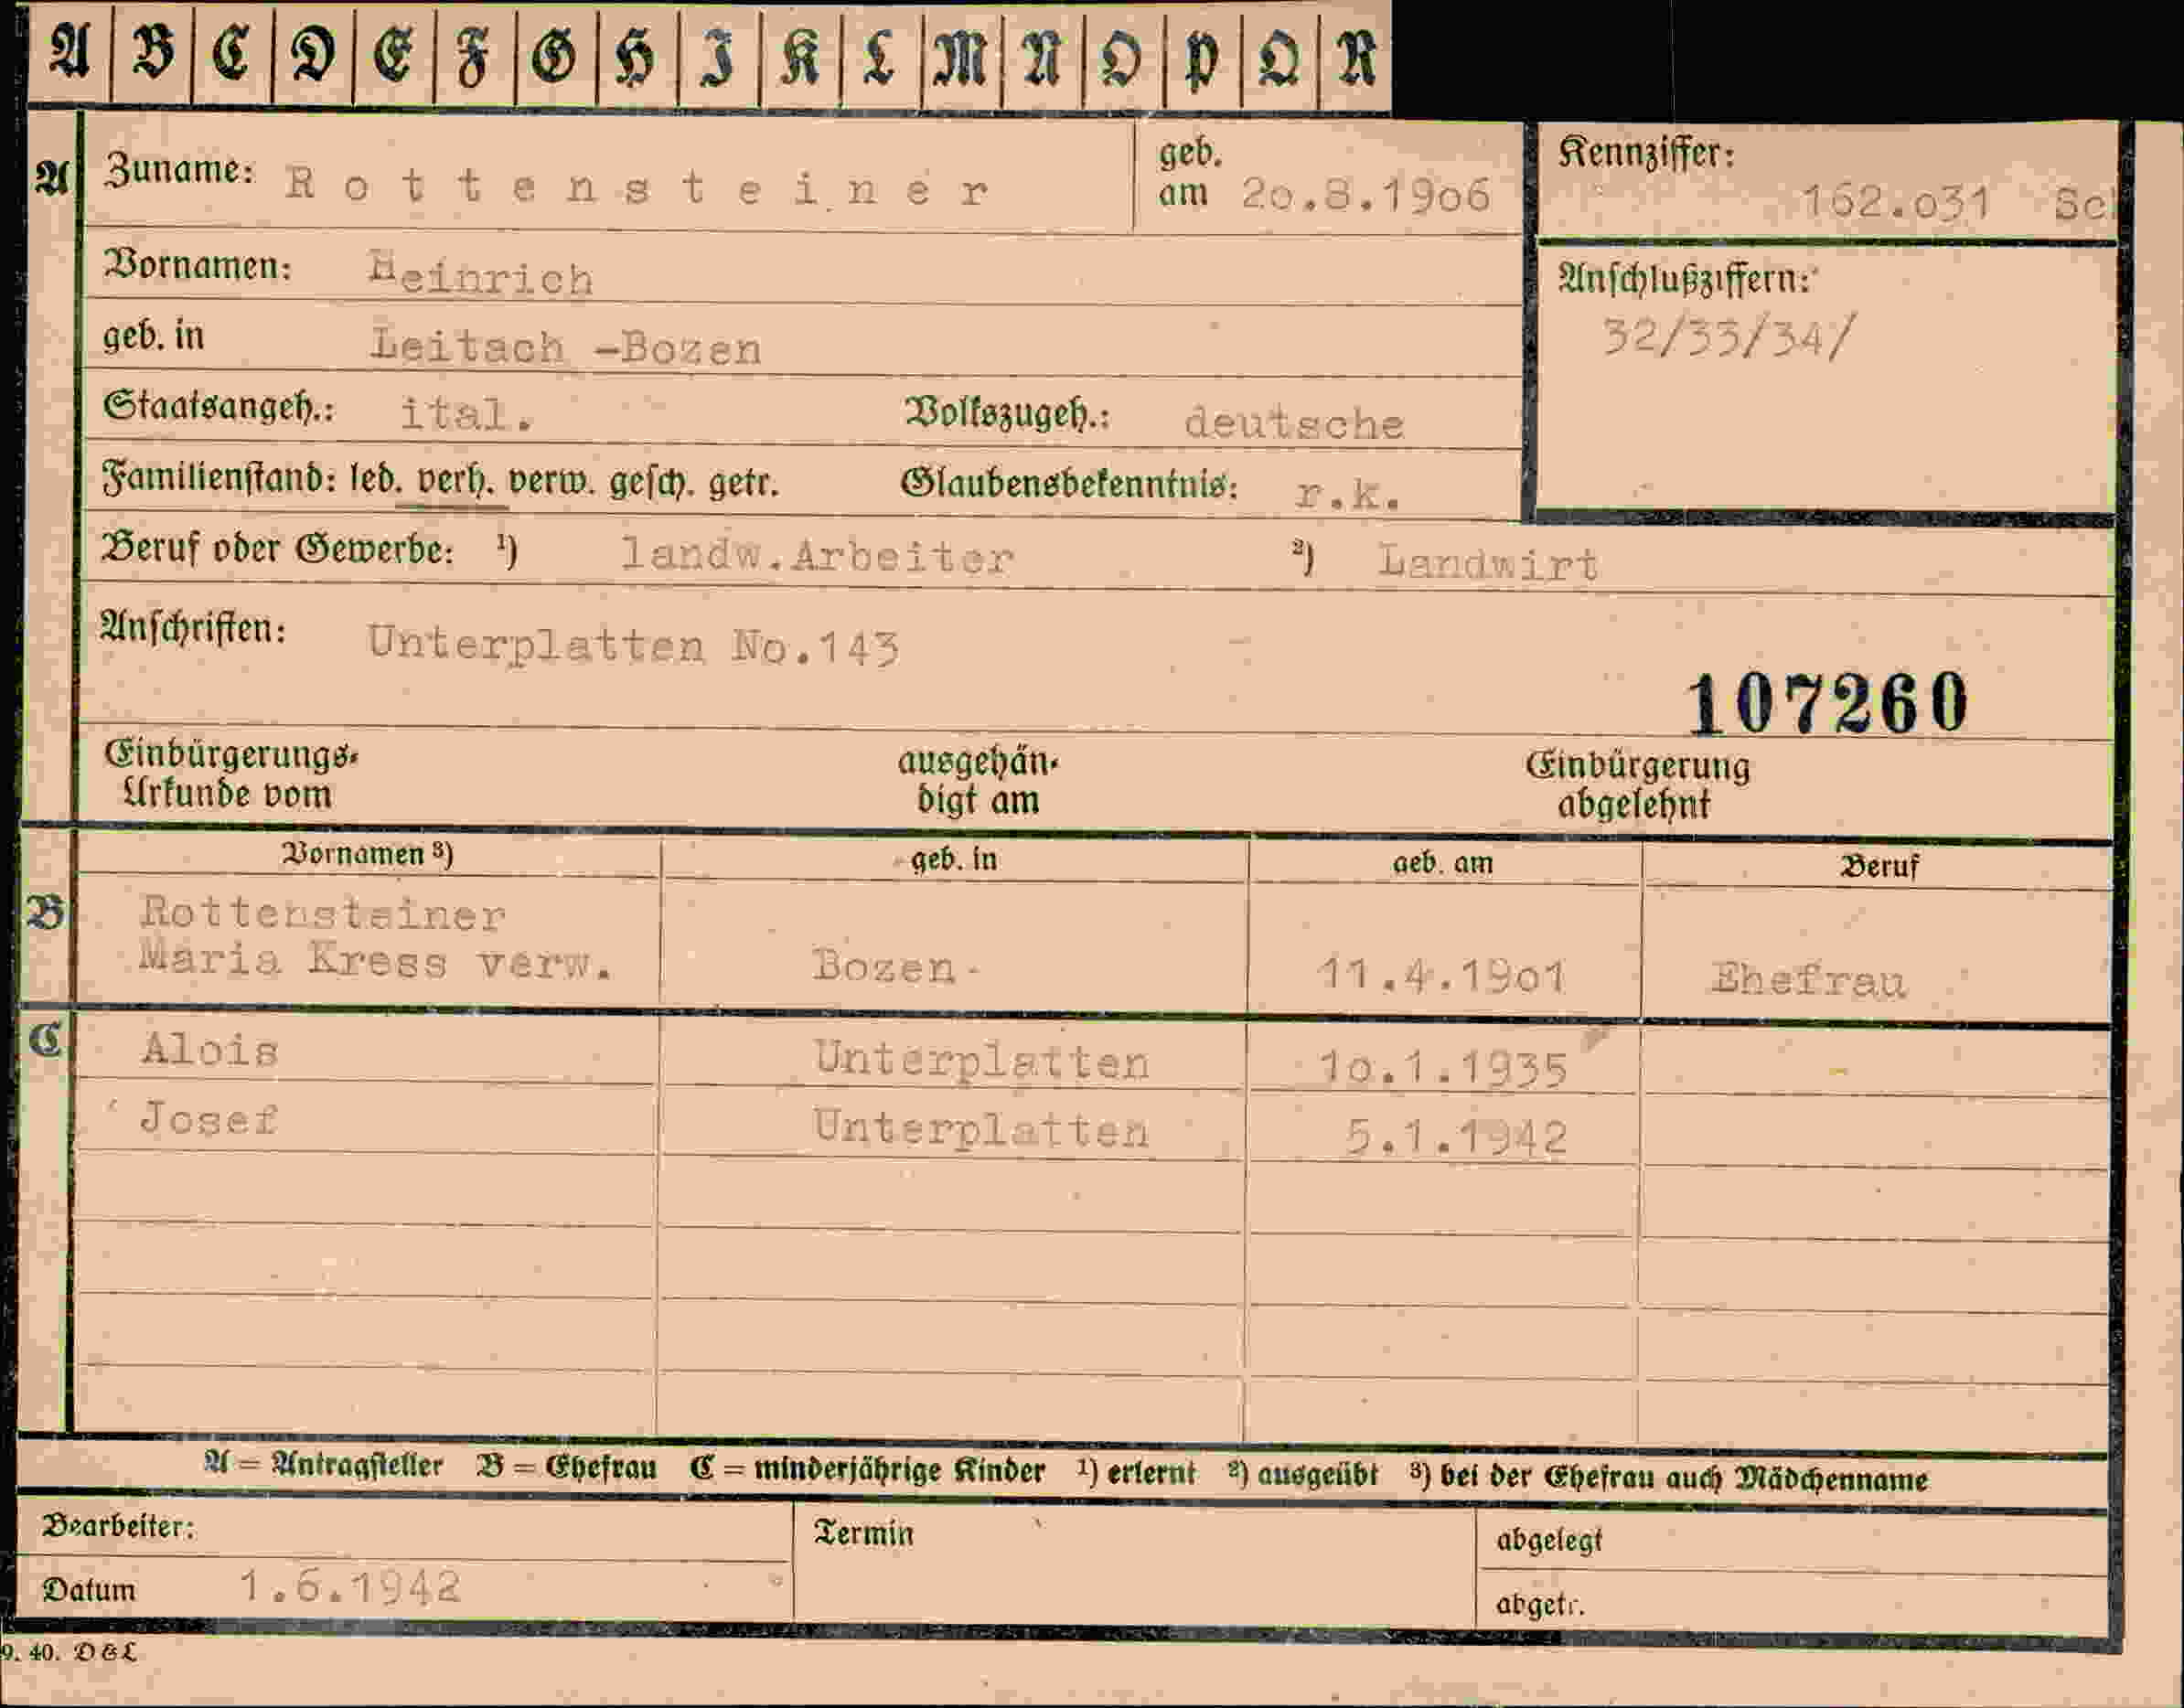 A B C D E F G H I K L M N O P Q R
A Zuname: Rottensteiner geb. am 2o.8.19o6 Kennziffer: 162.o31 Sch
Vornamen: Heinrich Anschlußziffern:
geb. in Leitach -Bozen 32/33/34/
Staatsangeh.: ital. Volkszugeh.: deutsche
Familienstand: led. verh. verw. gesch. getr. Glaubensbekenntnis: r.k.
Beruf oder Gewerbe: 1) landw.Arbeiter 2) Landwirt
Anschriften: Unterplatten No.143
107260
Einbürgerungs- ausgehän- Einbürgerung
Urkunde vom digt am abgelehnt
Vornamen 3) geb. in geb. am Beruf
B Rottensteiner
Maria Kress verw. Bozen- 11.4.19o1 Ehefrau
C Alois Unterplatten 1o.1.1935
Josef Unterplatten 5.1.1942
A = Antragsteller B = Ehefrau C = minderjährige Kinder 1) erlernt 2) ausgeübt 3) bei der Ehefrau auch Mädchenname
Bearbeiter: Termin abgelegt
Datum 1.6.1942 abgetr.
9. 40. D&L